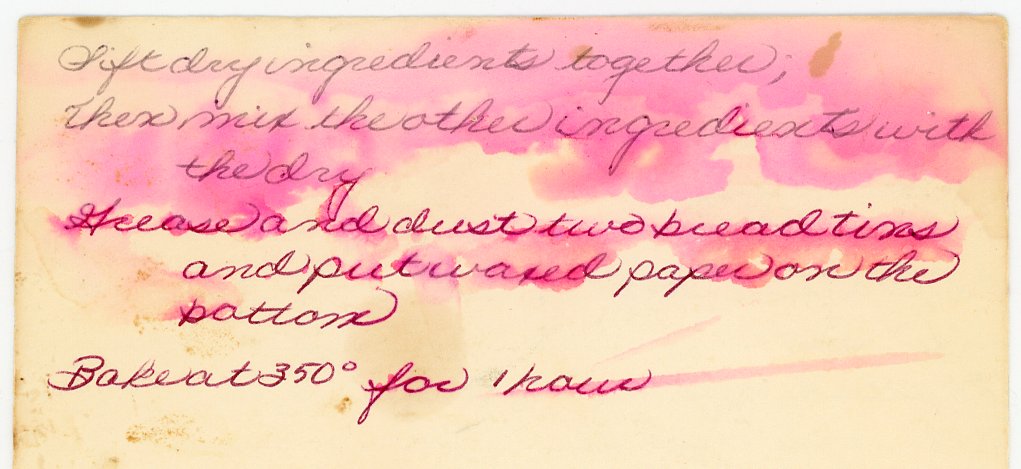 Sift dry ingredients together;
Then mix the other ingredients with
the dry
Grease and dust two bread tins
and put waxed paper on the
bottom
Bake at 350° for 1 hour